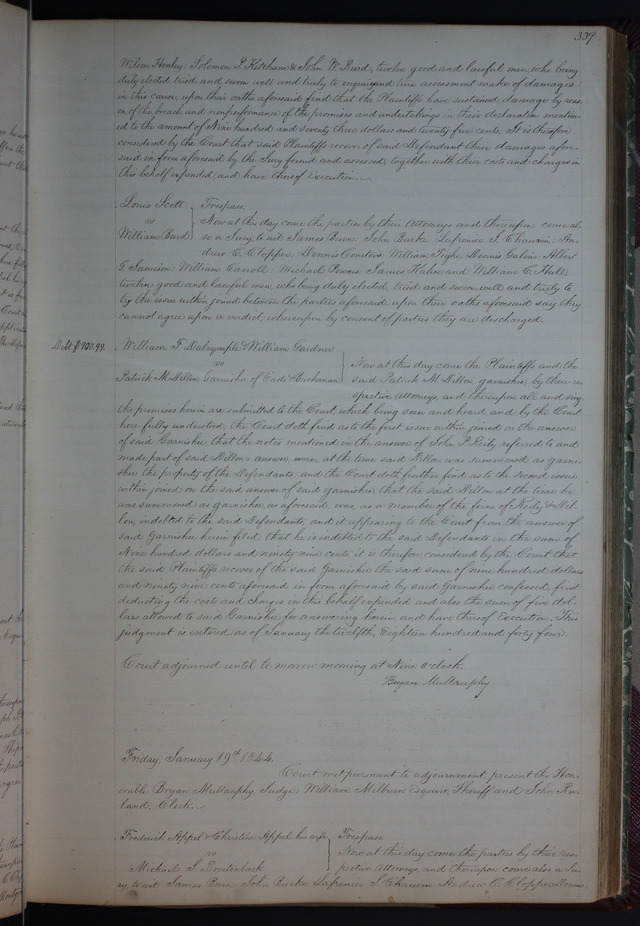 339
Wilson Henley; Solomon P. Ketchum & John W. Burd, twelve good and lawful men, who being
duly elected tried and sworn well and truly to enquire and true assessment make of damages
in this cause, upon their oaths aforesaid find that the Plaintiffs have sustained damage by reas-
on of the breach and nonperformance of the promises and undertakings in their declaration mention-
ed to the amount of Nine hundred and seventy three dollars and twenty five cents. It is therefore
considered by the Court that said Plaintiffs recover of said Defendant their damages afore-
said in form aforesaid by the Jury found and assessed, together with their costs and charges in
this behalf expended, and have thereof Execution.
Louis Scott
vs
William Burd
Trespass.
Now at this day come the parties by their Attorneys and thereupon come al-
so a Jury, to wit: James Burn: John Burke Lafrenier J. Chauvin: An-
drew C. Clopper: Dennis William Tighe Dennis Galvin Albert
G. Jamison: William Carroll: Michael Powers James Kahn and William C. Hull:
twelve good and lawful men, who being duly elected, tried and sworn well and truly to
try the issue within joined between the parties aforesaid, upon their oaths aforesaid say they
cannot agree upon a verdict, whereupon by consent of parties they are discharged.
Debt $900.99.
William T. Dalrymple & William Gardner
vs
Patrick M. Dillon, Garnishee of Eads & Buchanan
Now at this day come the Plaintiffs and the
said Patrick M. Dillon garnishee, by their re-
spective Attorneys, and thereupon all and sing.
the premises herein are submitted to the Court, which being seen and heard and by the Court
here fully understood, the Court doth find as to the first issue within joined on the answer
of said Garnishee, that the notes mentioned in the answer of John P. Reily referred to and
made part of said Dillon's answer, were, at the time said Dillon was summoned as garni-
shee the property of the Defendants, and the Court doth further find as to the second issue
within joined on the said answer of said garnishee, that the said Dillon at the time he
was summoned as garnishee as aforesaid, was, as a member of the firm of Reily & Dil-
lon, indebted to the said Defendants, and it appearing to the Court from the answer of
said Garnishee herein filed, that he is indebted to the said Defendants in the sum of
Nine hundred dollars and ninety nine cents it is therefore considered by the Court that
the said Plaintiffs recover of the said Garnishee the said sum of nine hundred dollars
and ninety nine cents aforesaid in form aforesaid by said Garnishee confessed, first
deducting the costs and charges in this behalf expended and also the sum of five dol-
lars allowed to said Garnishee for answering herein and have thereof Execution. This
judgment is entered as of January the twelfth, Eighteen hundred and forty four.
Court adjourned until to morrow morning at Nine o'clock.
Bryan Mullanphy
Friday, January 19th 1844.
Court met pursuant to adjournment, present the Hon-
orable Bryan Mullanphy, Judge: William Milburn Esquire, Sheriff and John Ru-
land, Clerk.
Frederick Appel & Christina Appel his wife
vs
Michael J.
Trespass
Now at this day come the parties by their res-
pective Attorneys and thereupon come also a Ju-
ry, to wit: James Burn: John Burke Lafrenier J. Chauvin Andrew C. Clopper Dennis